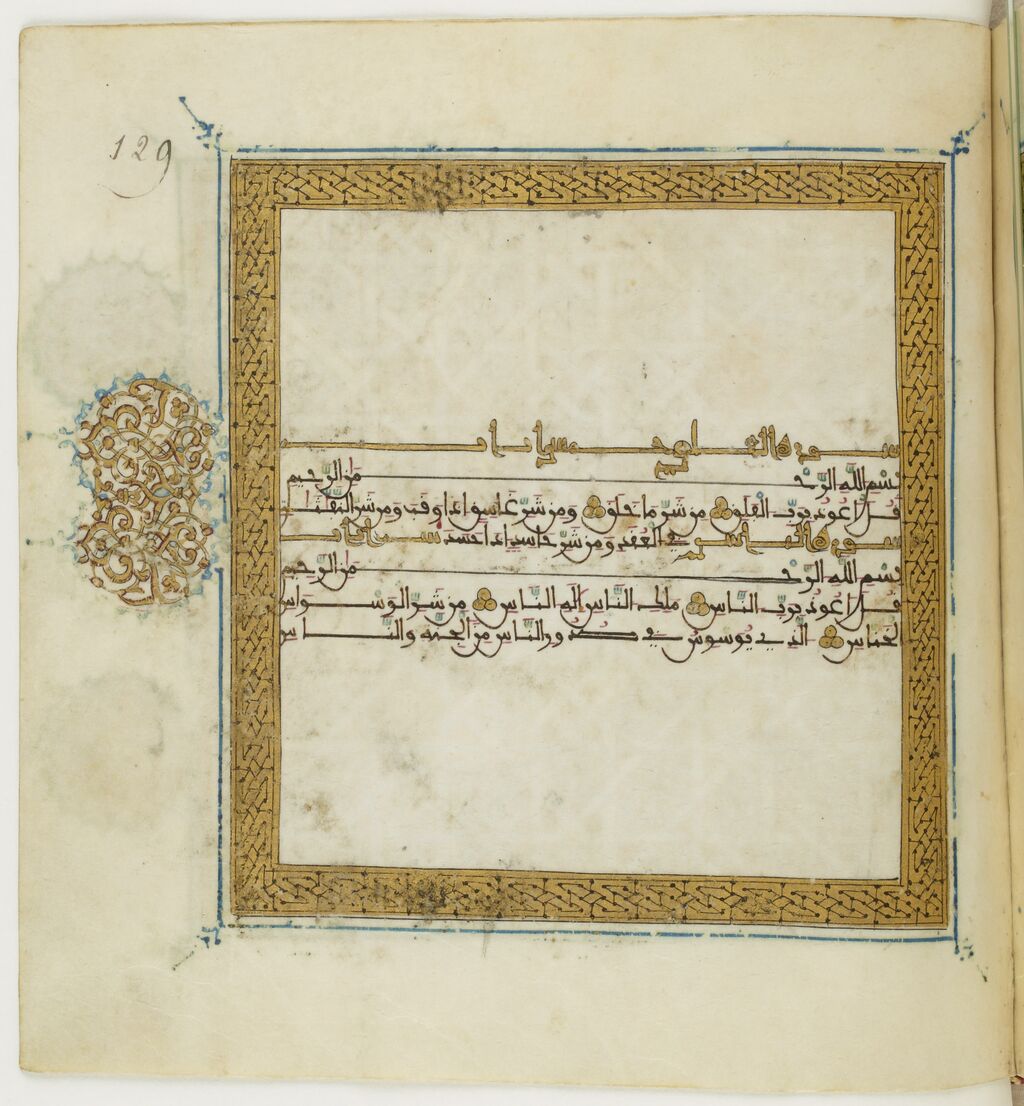 129
سورة الفلق خمس ايات
بِسْمِ اللَّهِ الرَّحْمَٰنِ الرَّحِيمِ
قُلْ أَعُوذُ بِرَبِّ الْفَلَقِ مِن شَرِّ مَا خَلَقَ وَمِن شَرِّ غَاسِقٍ إِذَا وَقَبَ وَمِن شَرِّ النَّفَّٰثَٰتِ
فِي الْعُقَدِ وَمِن شَرِّ حَاسِدٍ إِذَا حَسَدَ
سورة الناس ست ايات
بِسْمِ اللَّهِ الرَّحْمَٰنِ الرَّحِيمِ
قُلْ أَعُوذُ بِرَبِّ النَّاسِ مَلِكِ النَّاسِ إِلَٰهِ النَّاسِ مِن شَرِّ الْوَسْوَاسِ
الْخَنَّاسِ الَّذِي يُوَسْوِسُ فِي صُدُورِ النَّاسِ مِنَ الْجِنَّةِ وَالنَّاسِ